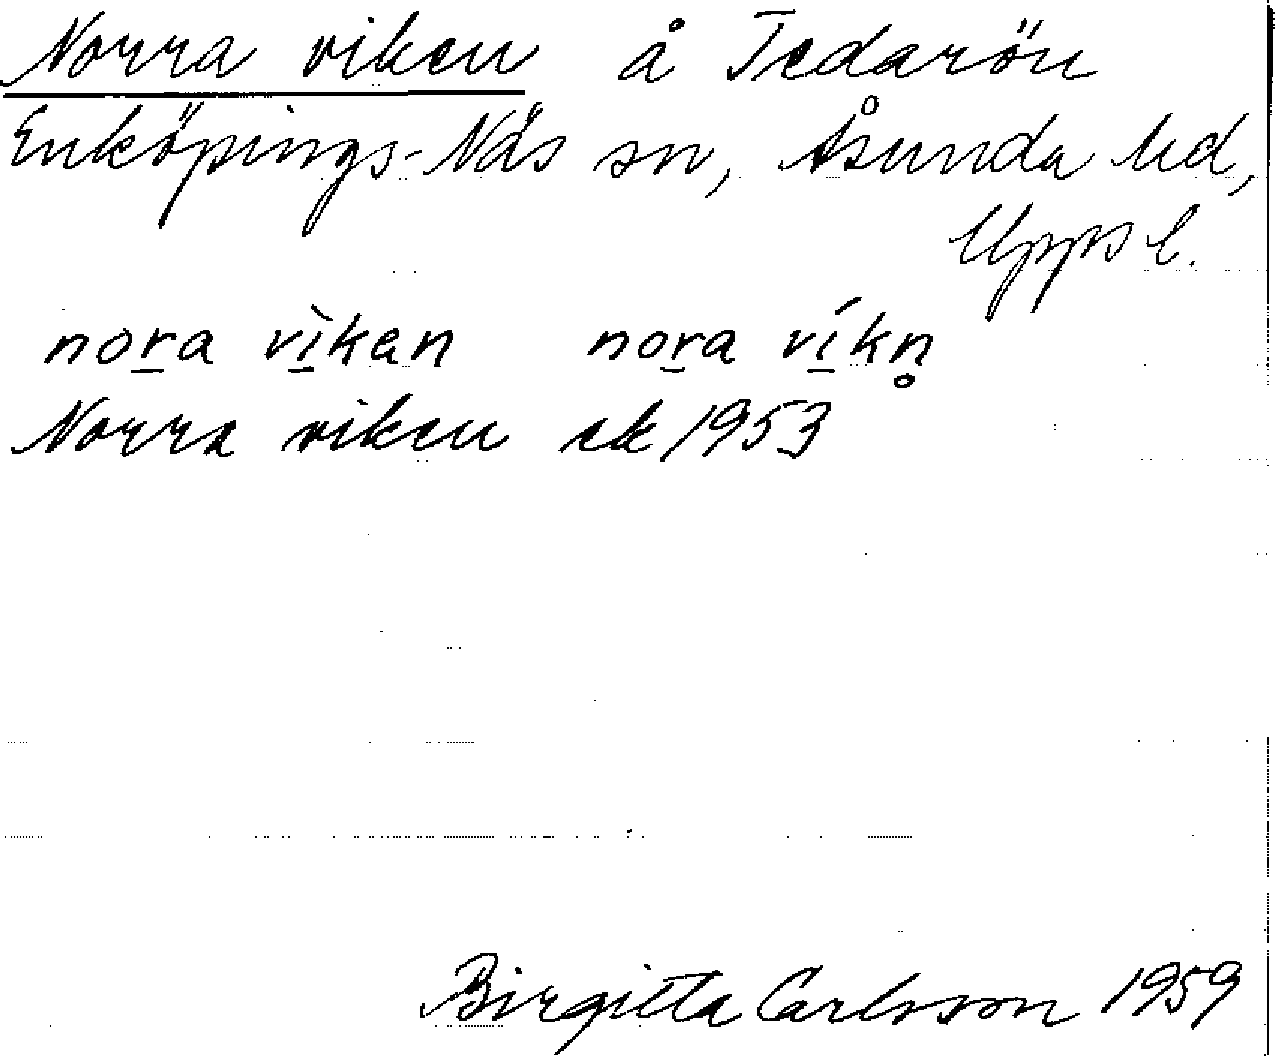 Norra viken å Tedarön
Enköpings-Näs sn, Åsunda hd,
Upps l.
no͟ra vì͟kan no͟ra ví͟kn̥
Norra viken ek 1953
Birgitta Carlsson 1959